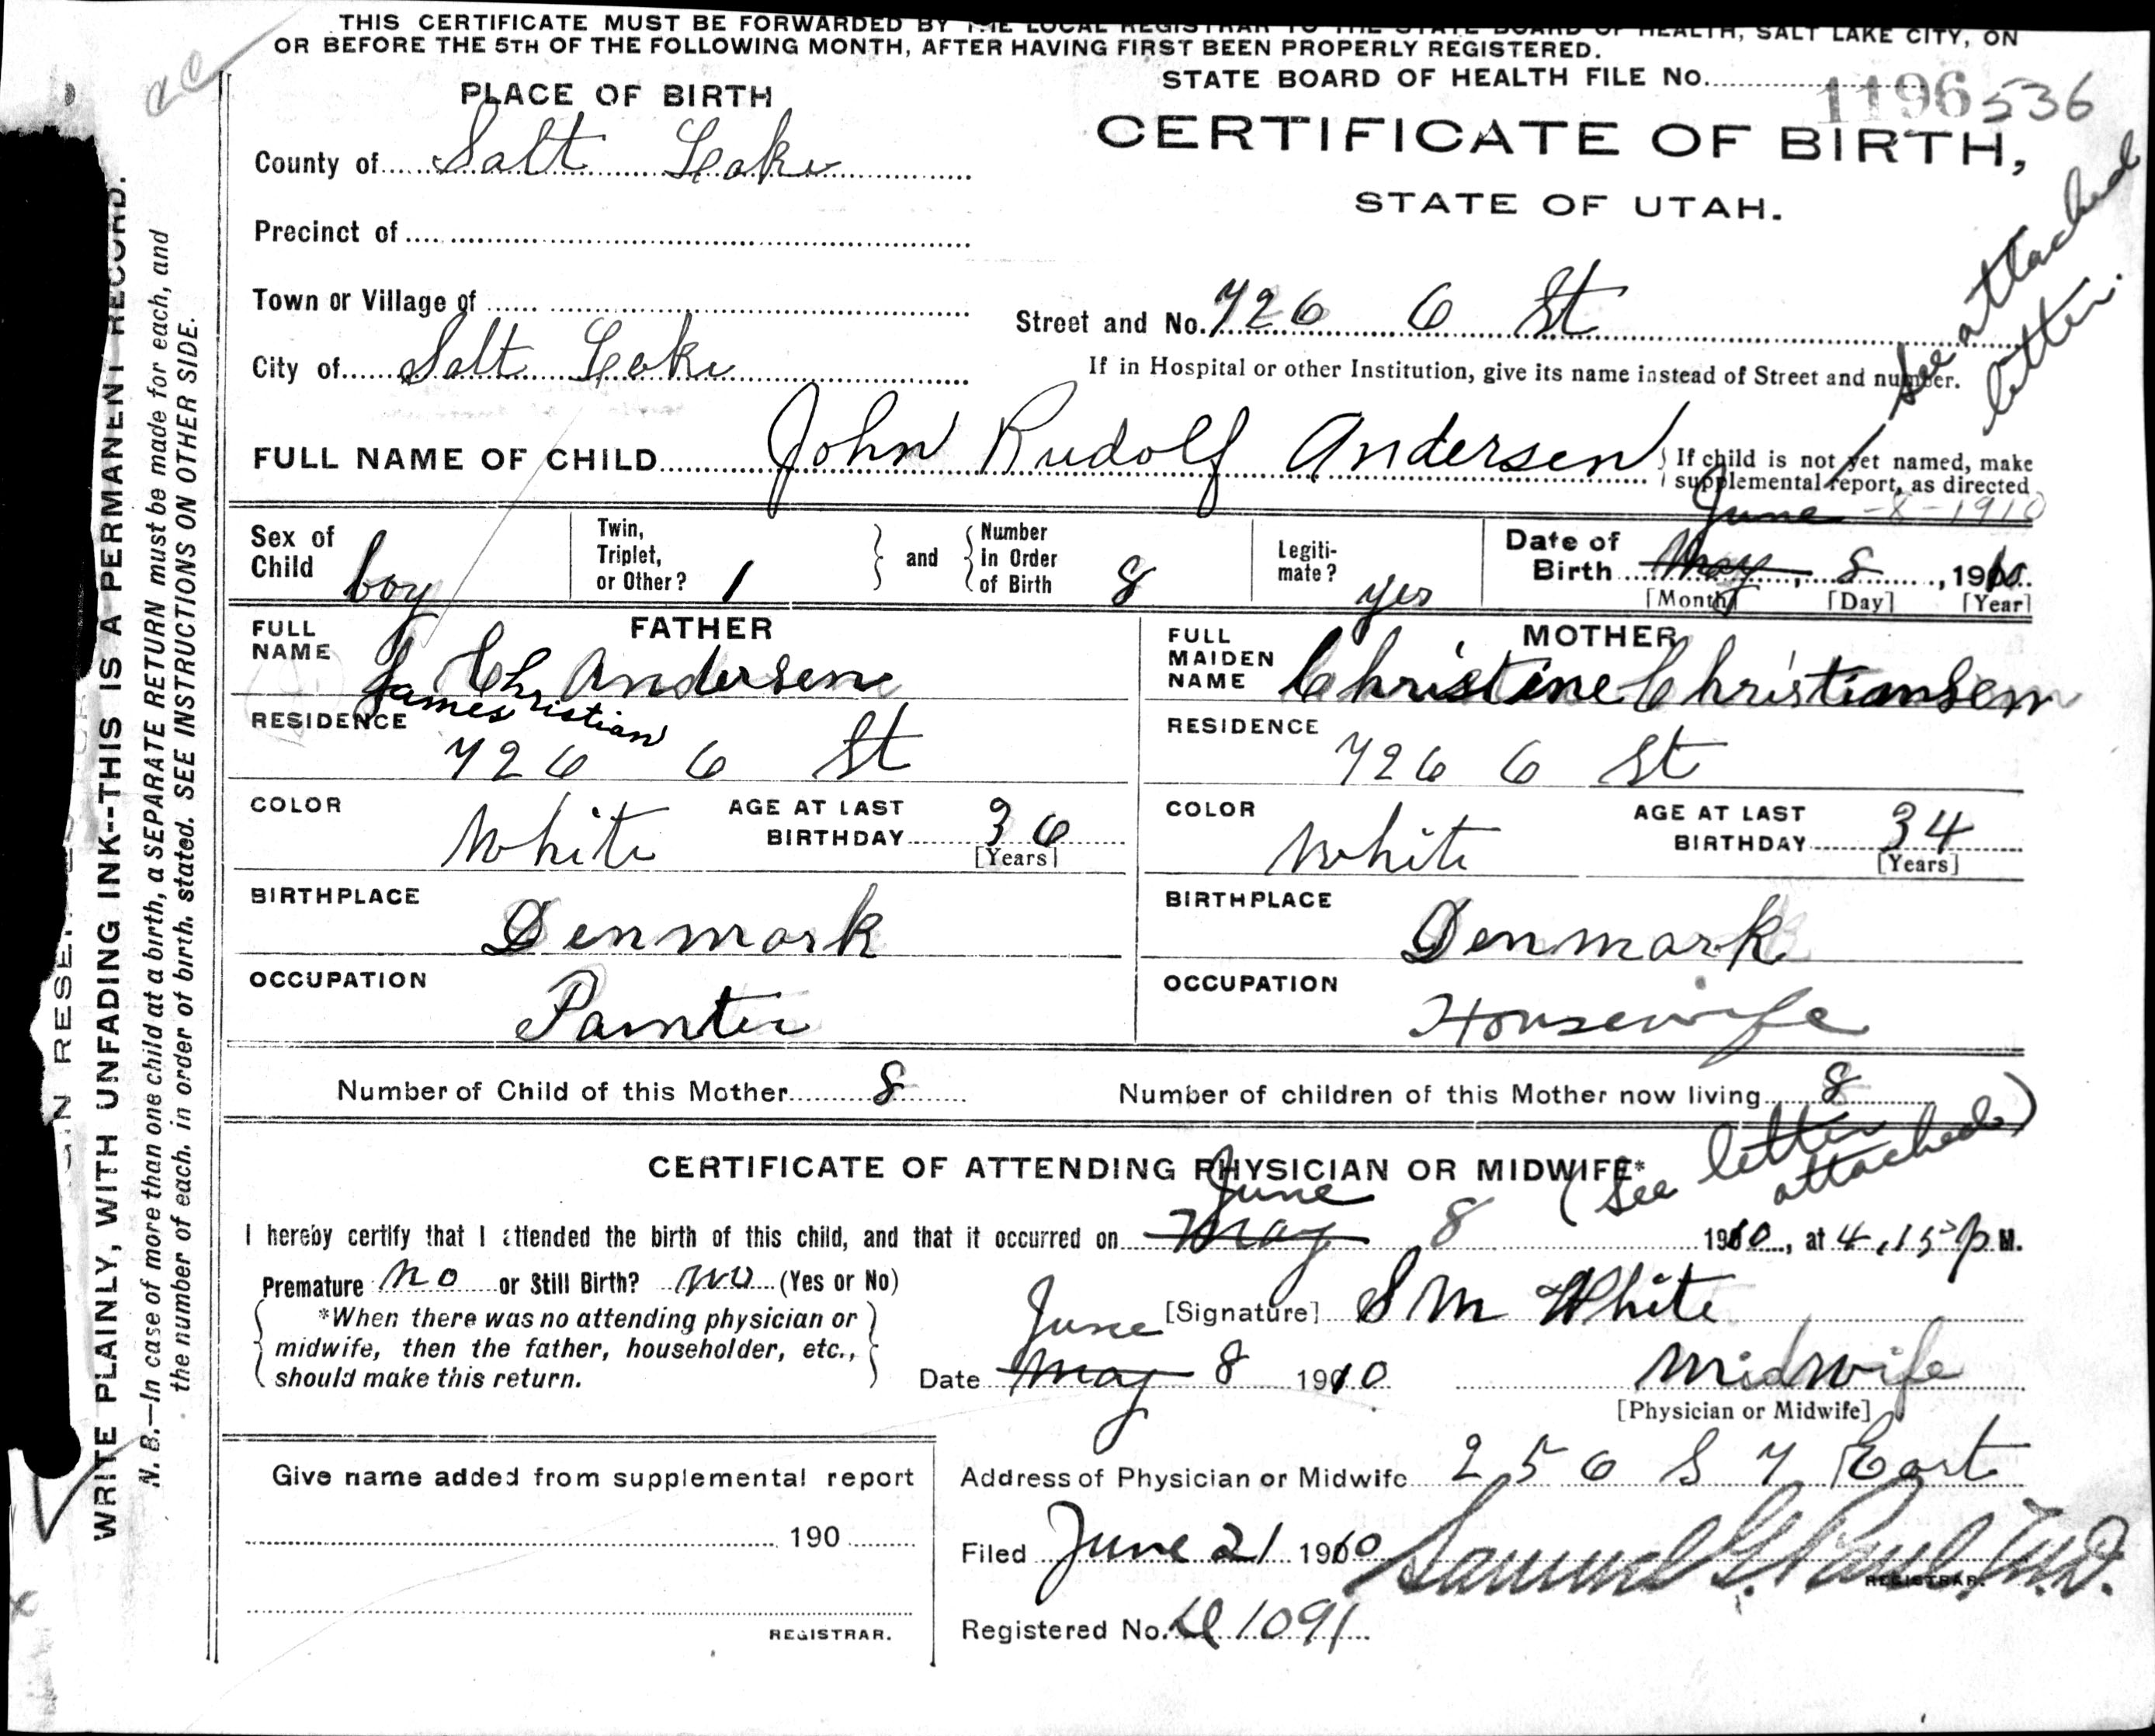 THIS CERTIFICATE MUST BE FORWARDED BY THE LOCAL REGISTRAR TO THE STATE BOARD OF HEALTH, SALT LAKE CITY, ON
OR BEFORE THE 5TH OF THE FOLLOWING MONTH, AFTER HAVING FIRST BEEN PROPERLY REGISTERED.
STATE BOARD OF HEALTH FILE No. 1196 536
PLACE OF BIRTH
CERTIFICATE OF BIRTH,
STATE OF UTAH.
County of Salt Lake
Precinct of
Town or Village of
Street and No. 726 6 St
City of Salt Lake
If in Hospital or other Institution, give its name instead of Street and number.
See attached
letter.
FULL NAME OF CHILD John Rudolf Andersen
If child is not yet named, make
supplemental report, as directed
June -8-1910
Sex of Child boy
Twin, Triplet, or Other? 1
and Number In Order of Birth 8
Legiti-mate? yes
Date of Birth May, 8, 1910
[Month] [Day] [Year]
FATHER
FULL NAME J Chr Andersen
James Christian
RESIDENCE 726 6 St
COLOR White AGE AT LAST BIRTHDAY 36
[Years]
BIRTHPLACE Denmark
OCCUPATION Painter
MOTHER
FULL MAIDEN NAME Christine Christiansen
RESIDENCE 726 6 St
COLOR White AGE AT LAST BIRTHDAY 34
[Years]
BIRTHPLACE Denmark
OCCUPATION Housewife
Number of Child of this Mother 8 Number of children of this Mother now living 8
CERTIFICATE OF ATTENDING PHYSICIAN OR MIDWIFE*
(See letter attached)
June
I hereby certify that I attended the birth of this child, and that it occurred on May 8 1910, at 4.15 P.M.
Premature no or Still Birth? no (Yes or No)
*When there was no attending physician or
midwife, then the father, householder, etc.,
should make this return.
[Signature] S M White
June
Date May 8 1910 Midwife
[Physician or Midwife]
Give name added from supplemental report
190
REGISTRAR.
Address of Physician or Midwife 256 S 7 East
Filed June 21 1910 Samuel G. Paul M.D.
REGISTRAR.
Registered No. 1091
WRITE PLAINLY, WITH UNFADING INK--THIS IS A PERMANENT RECORD.
N. B.—In case of more than one child at a birth, a SEPARATE RETURN must be made for each, and
the number of each, in order of birth, stated. SEE INSTRUCTIONS ON OTHER SIDE.